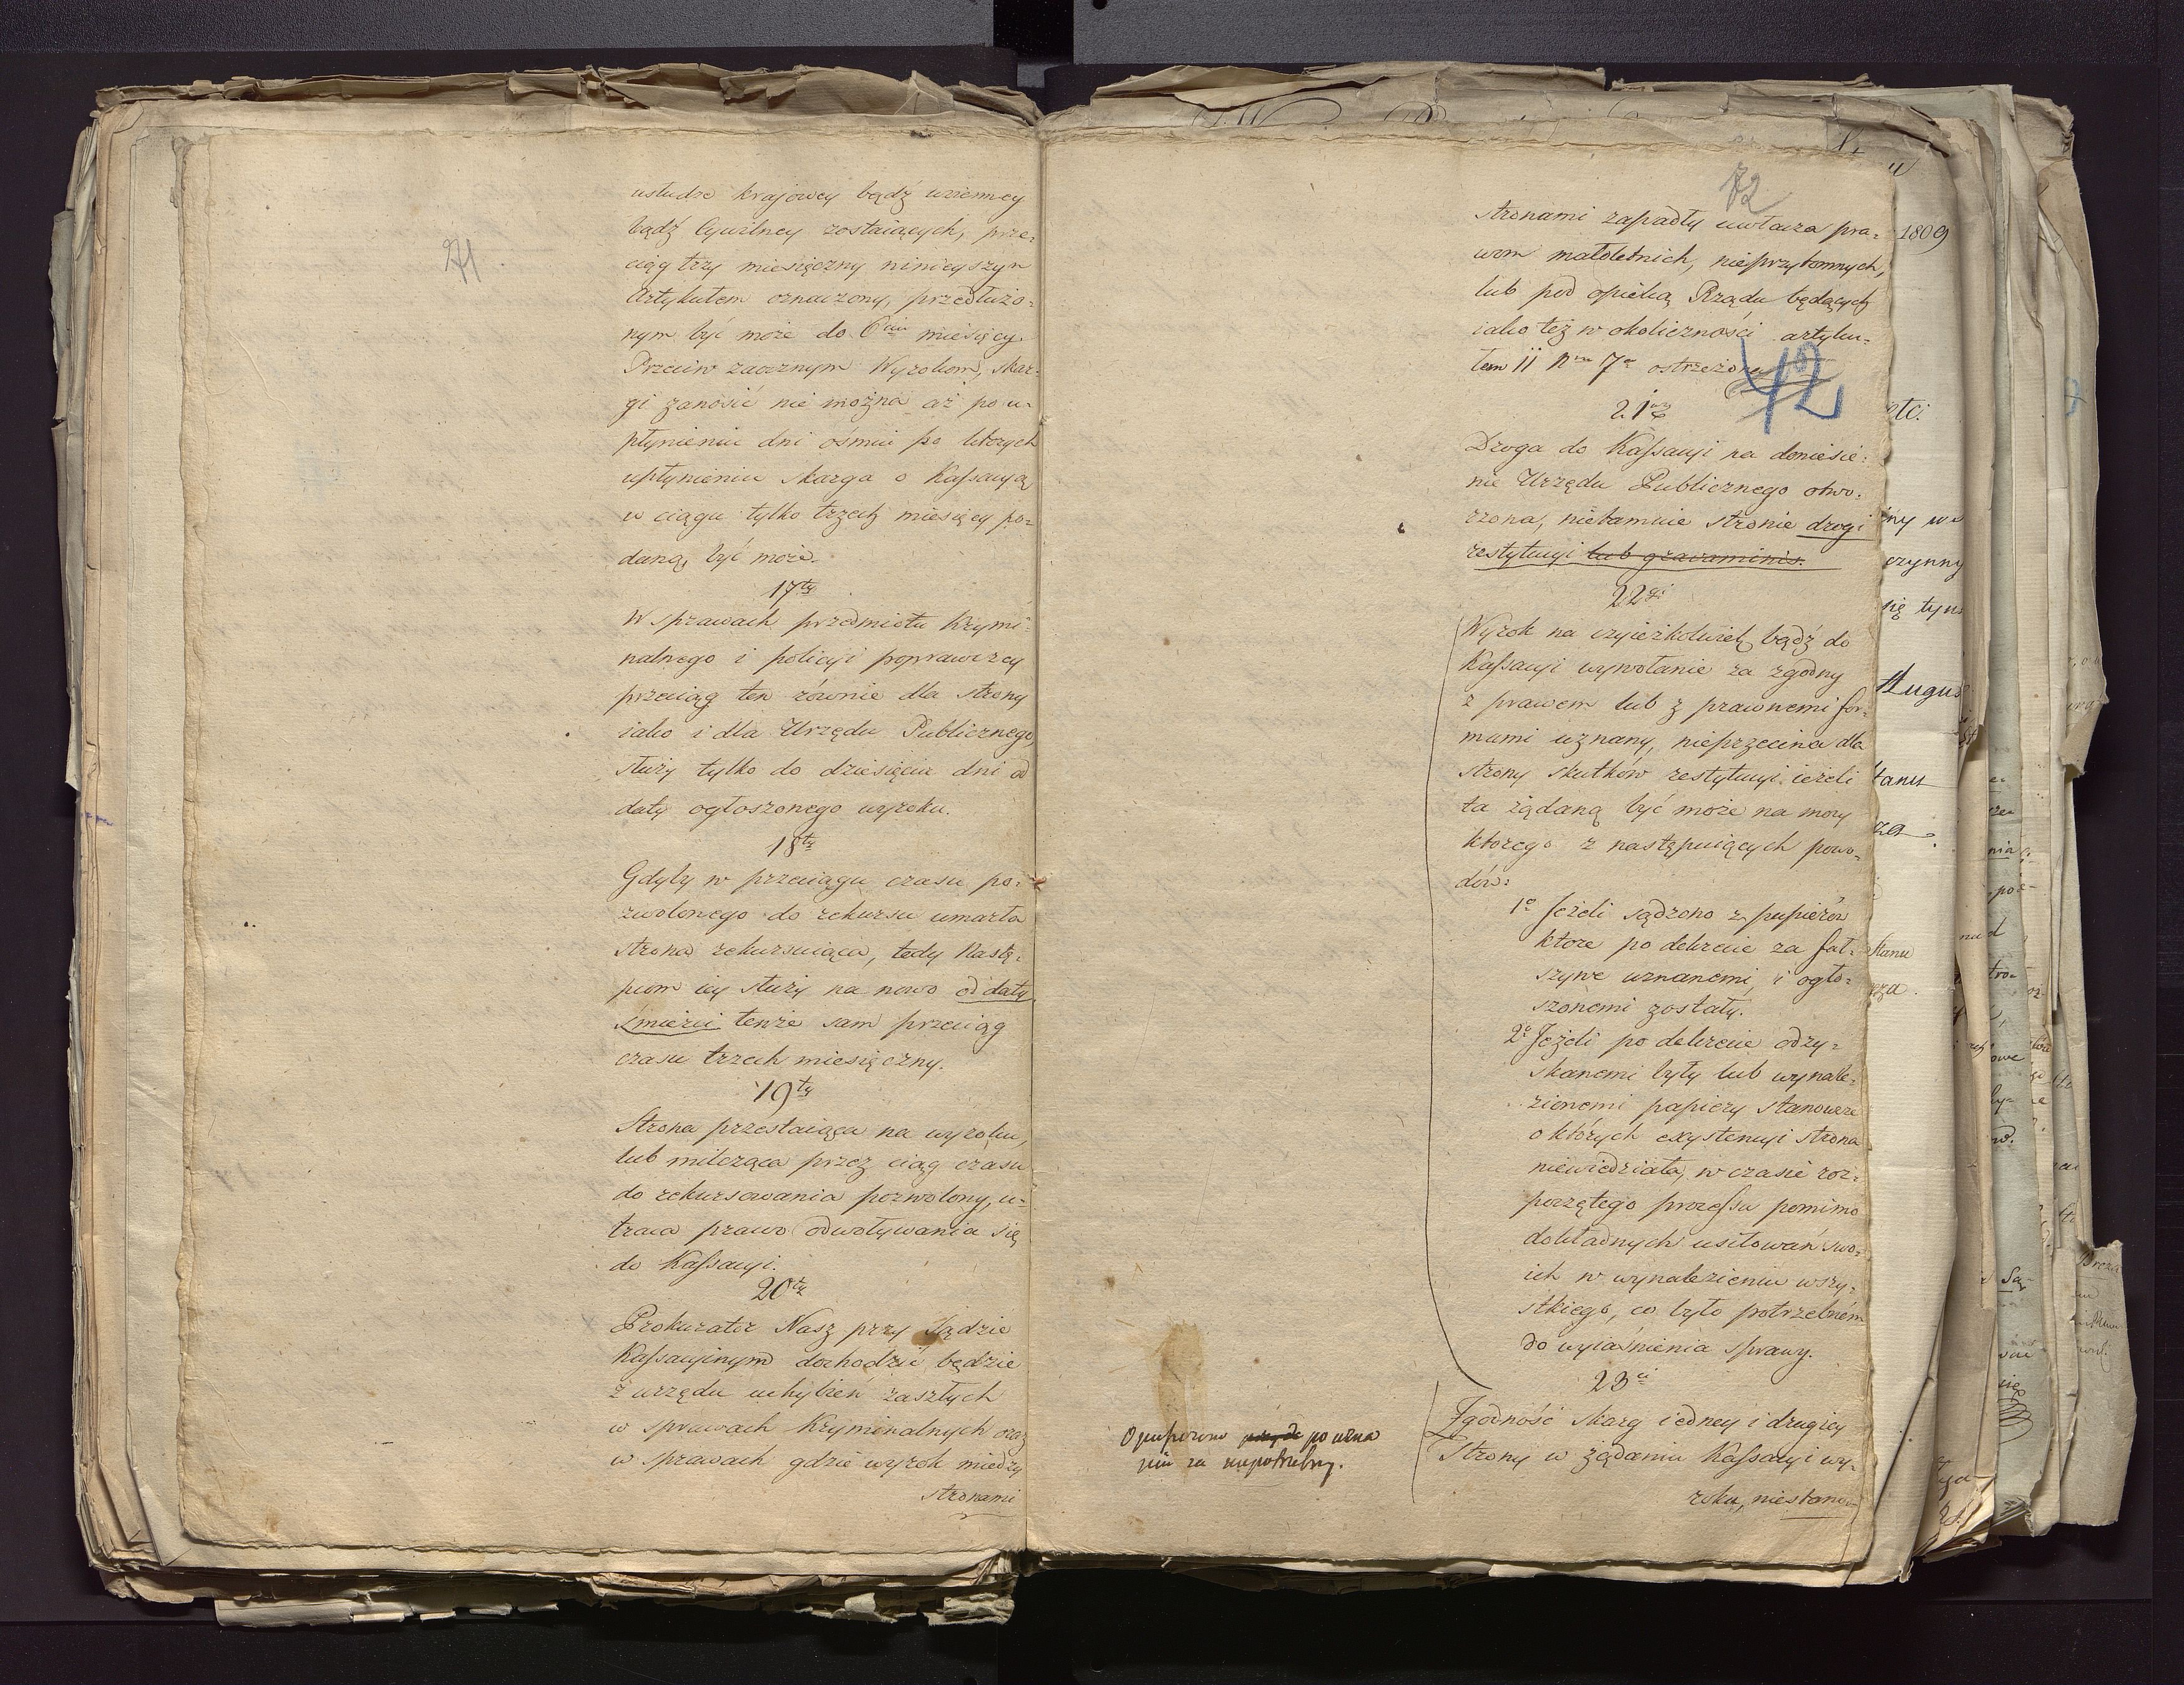 71
usłudze krajowey bądź wzienney
bądź Cywilney zostaiących, prze=
ciąg trzy miesięczny ninieyszym
Artykułem oznaczony, przedłużo=
nym być może do 6ciu miesięcy.
Przeciw zaocznym Wyrokom, skar=
gi zanosić nie można aż po u=
płynieniu dni ośmiu po których
upłynieniu skarga o Kassacyą
w ciągu tylko trzech miesięcy po=
daną być może.
17ty
W sprawach przedmiotu krymi=
nalnego i policyi poprawczey
przeciąg ten równie dla strony
iako i dla Urzędu Publicznego,
służy tylko do dziesięciu dni od
daty ogłoszonego wyroku.
18ty
Gdyby w przeciągu czasu po=
zwolonego do rekursu umarła
strona rekursuiąca, tedy Nastę=
pcom iey służy na nowo od daty
śmierci tenże sam przeciąg
czasu trzech miesięczny.
19ty
Strona przestaiąca na wyroku,
lub milcząca przez ciąg czasu
do rekursowania pozwolony, u=
traca prawo odwoływania się
do Kassacyi.
20ty
Prokurator Nasz przy Sądzie
Kassacyinym dochodzić będzie
z urzędu uchybień zaszłych
w sprawach Kryminalnych oraz
w sprawach gdzie wyrok między
stronami
72
stronami zapadły uwłacza pra=
wom małoletnich, nieprzytomnych,
lub pod opieką Rządu będących
iako też w okoliczności artyku=
łem 11 Nrm 7o ostrzeżoney
42
21wy
Droga do Kassacyi na doniesie=
nie Urzędu Publicznego otwo=
rzona, nietamuie stronie drogi
restytucyi lub gravaminis.
22gi
Wyrok na czyieżkolwiek bądź do
Kassacyi wywołanie za zgodny
z prawem lub z prawnemi for=
mami uznany, nieprzecina dla
strony skutków restytucyi ieżeli
ta żądaną być może na mocy
którego z następuiących powo=
dów:
1o Jeżeli sądzono z papierów
ktore po dekrecie za fał=
szywe uznanemi, i ogło=
szonemi zostały.
2o Jeżeli po dekrecie odzy=
skanemi były lub wynale=
zionemi papiery stanowcze
o których exystencyi strona
niewiedziała, w czasie roz=
poczętego processu pomimo
dokładnych usiłowań swo=
ich w wynalezieniu wszy=
stkiego, co było potrzebném
do wyiaśnienia sprawy.
23ci
Zgodność skarg iedney i drugiey
Strony w żądaniu Kassacyi wy=
roku, niestano=
Opuszczono po uzna
niu za niepotrzebny.
1809